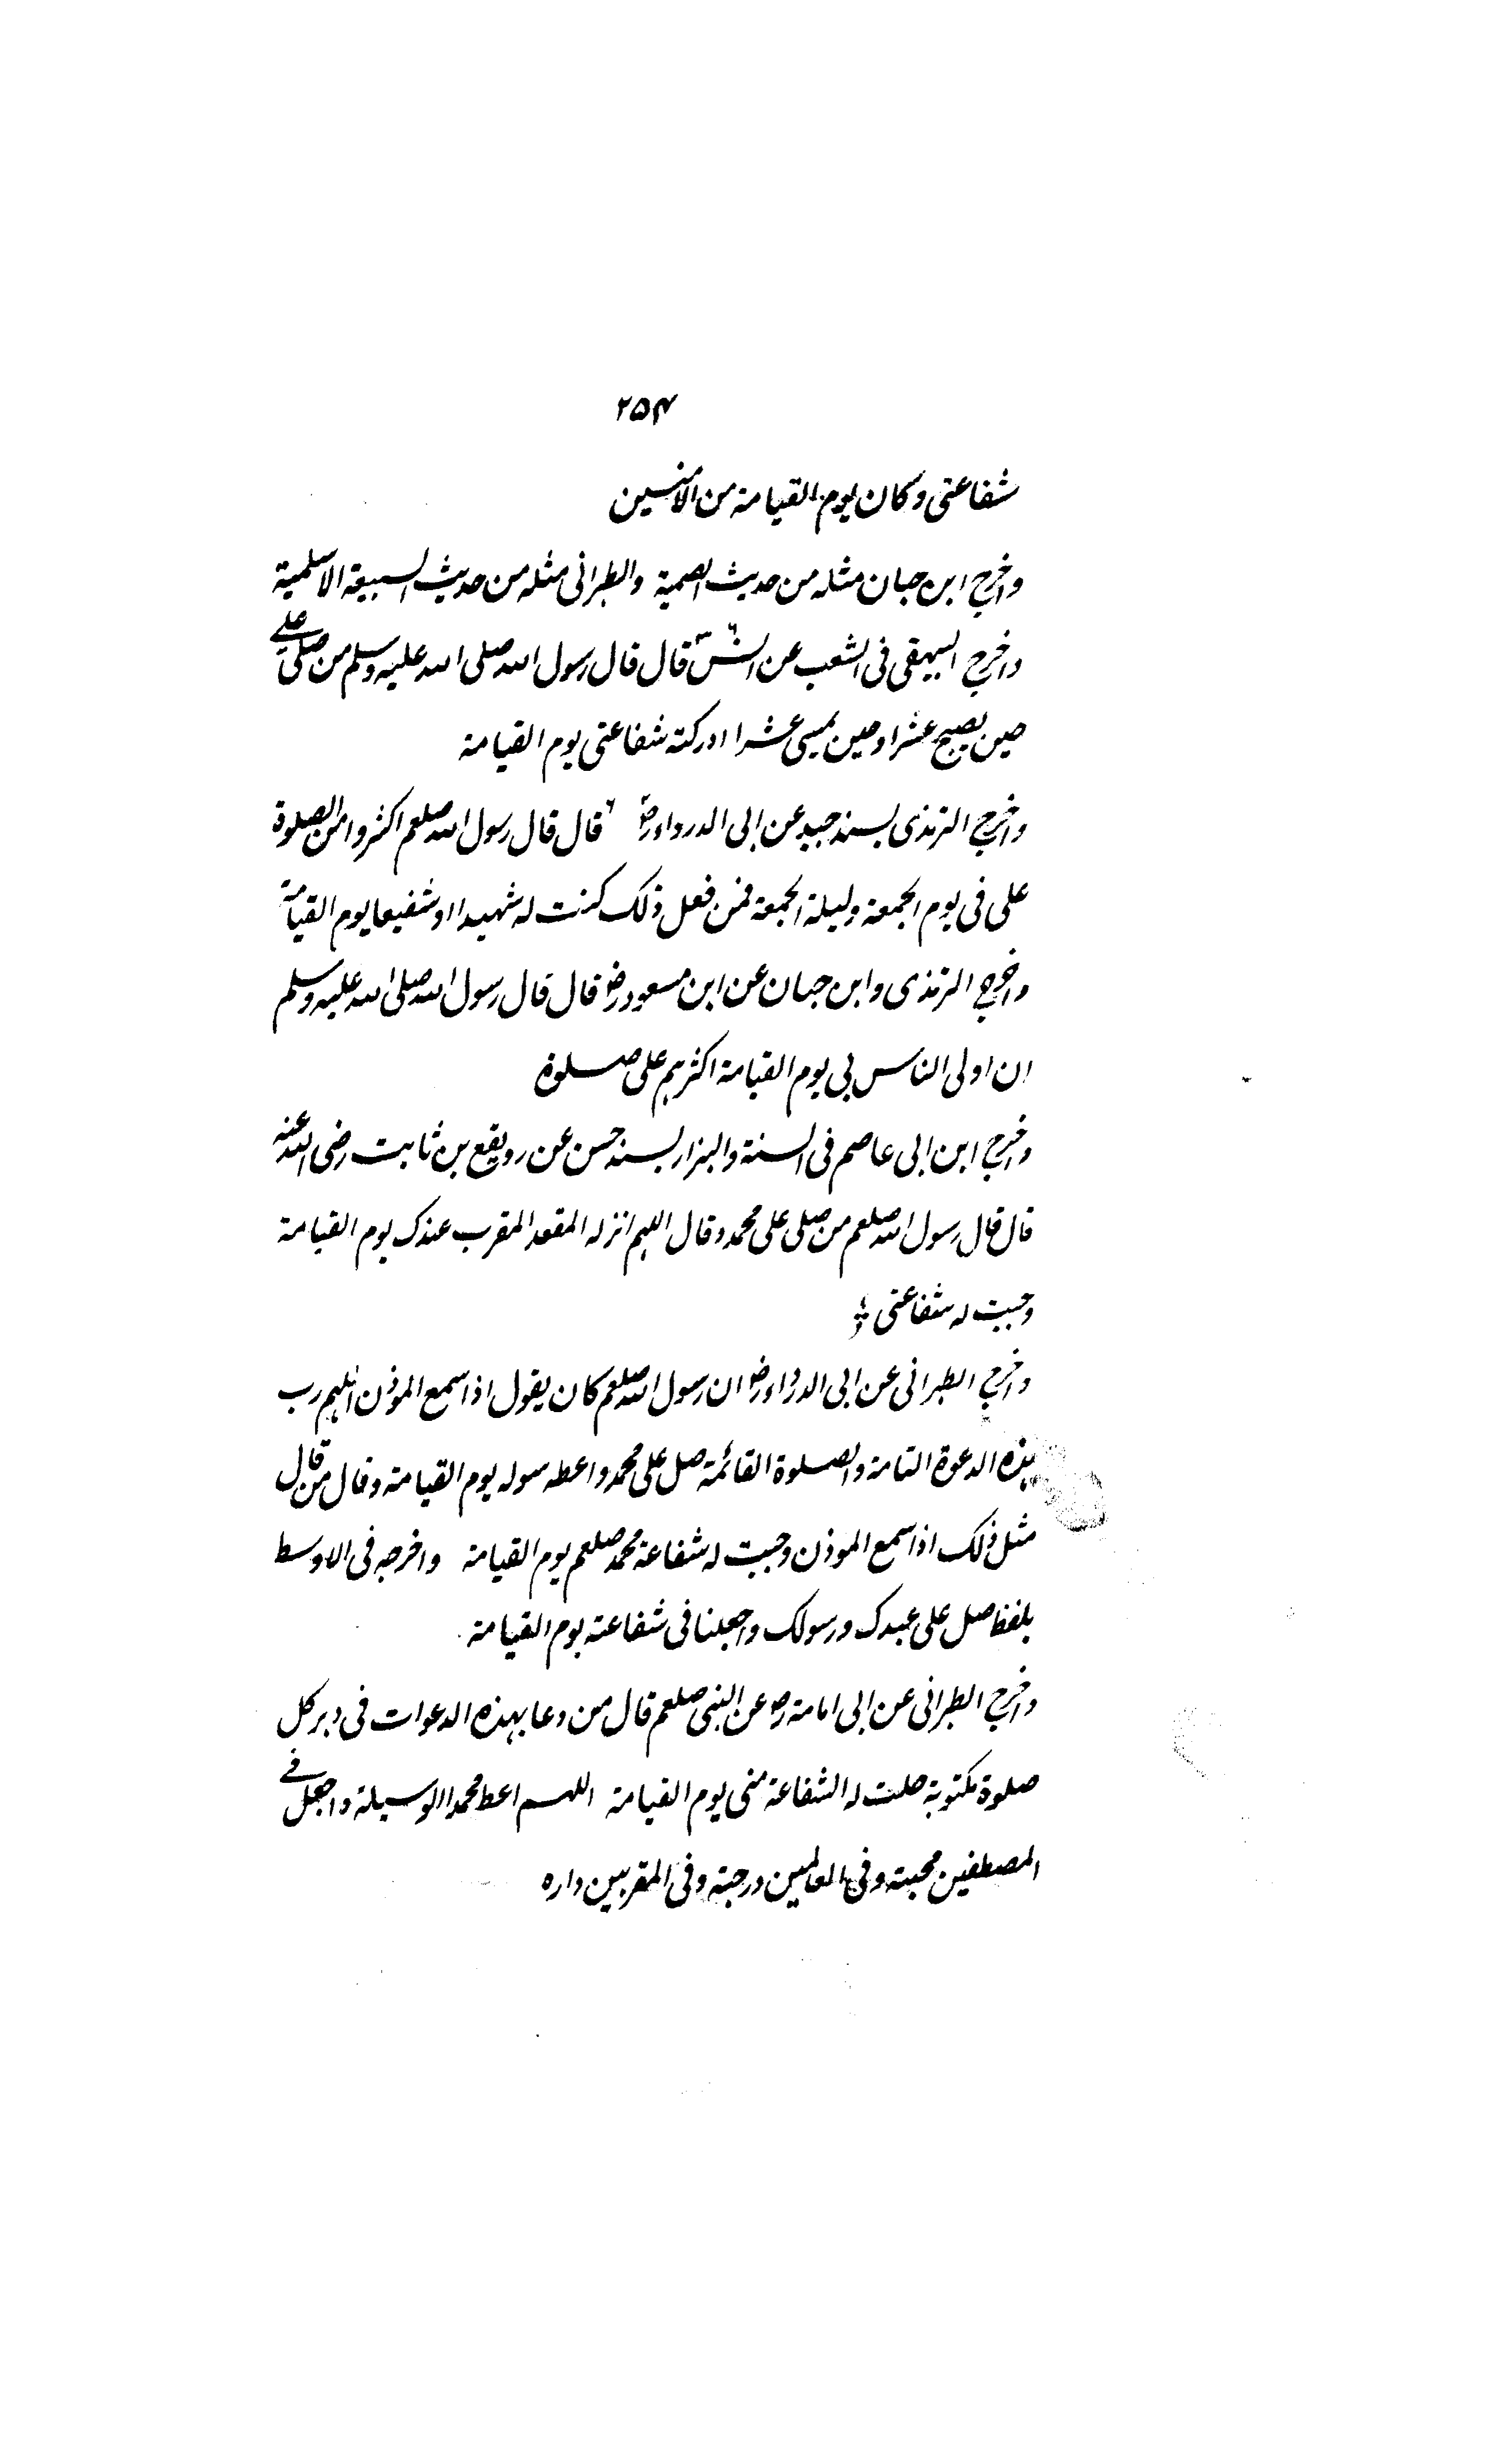 ۲۵۴
شفاعتی وکان یوم القیامة من الامنین
واخرج ابن حبان مثله من حدیث الصمیة والطبرانی مثله من حدیث السبیعة الاسلمیة
واخرج البیهقی فی الشعب عن انس قال قال رسول الله صلی الله علیه وسلم من صلی علے
حین یصبح عشرا وحین یمسی عشرا ادرکته شفاعتی یوم القیامة
واخرج الترمذی بسند جید عن ابی الدرداء رض قال قال رسول الله صلعم اکثروا من الصلوة
علی فی یوم الجمعة ولیلة الجمعة فمن فعل ذلک کنت له شهیدا او شفیعا یوم القیامة
واخرج الترمذی وابن حبان عن ابن مسعود رض قال قال رسول الله صلی الله علیه وسلم
ان اولی الناس بی یوم القیامة اکثرهم علی صلوة
واخرج ابن ابی عاصم فی السنة والبزار بسند حسن عن رویفع بن ثابت رضی الله عنه
قال قال رسول الله صلعم من صلی علی محمد وقال اللهم انزله المقعد المقرب عندک یوم القیامة
وجبت له شفاعتی
واخرج الطبرانی عن ابی الدرداء رض ان رسول الله صلعم کان یقول اذا سمع الموذن اللهم رب
هذه الدعوة التامة والصلوة القائمة صل علی محمد واعطه سوله یوم القیامة وقال من قال
مثل ذلک اذا سمع الموذن وجبت له شفاعة محمد صلعم یوم القیامة واخرجه فی الاوسط
بلفظ صل علی عبدک ورسولک واجعلنا فی شفاعته یوم القیامة
واخرج الطبرانی عن ابی امامة رض عن النبی صلعم قال من دعا بهذه الدعوات فی دبر کل
صلوة مکتوبة حلت له الشفاعة منی یوم القیامة اللهم اعط محمدا الوسیلة واجعل فے
المصطفین محبته وفی العالمین درجته وفی المقربین داره